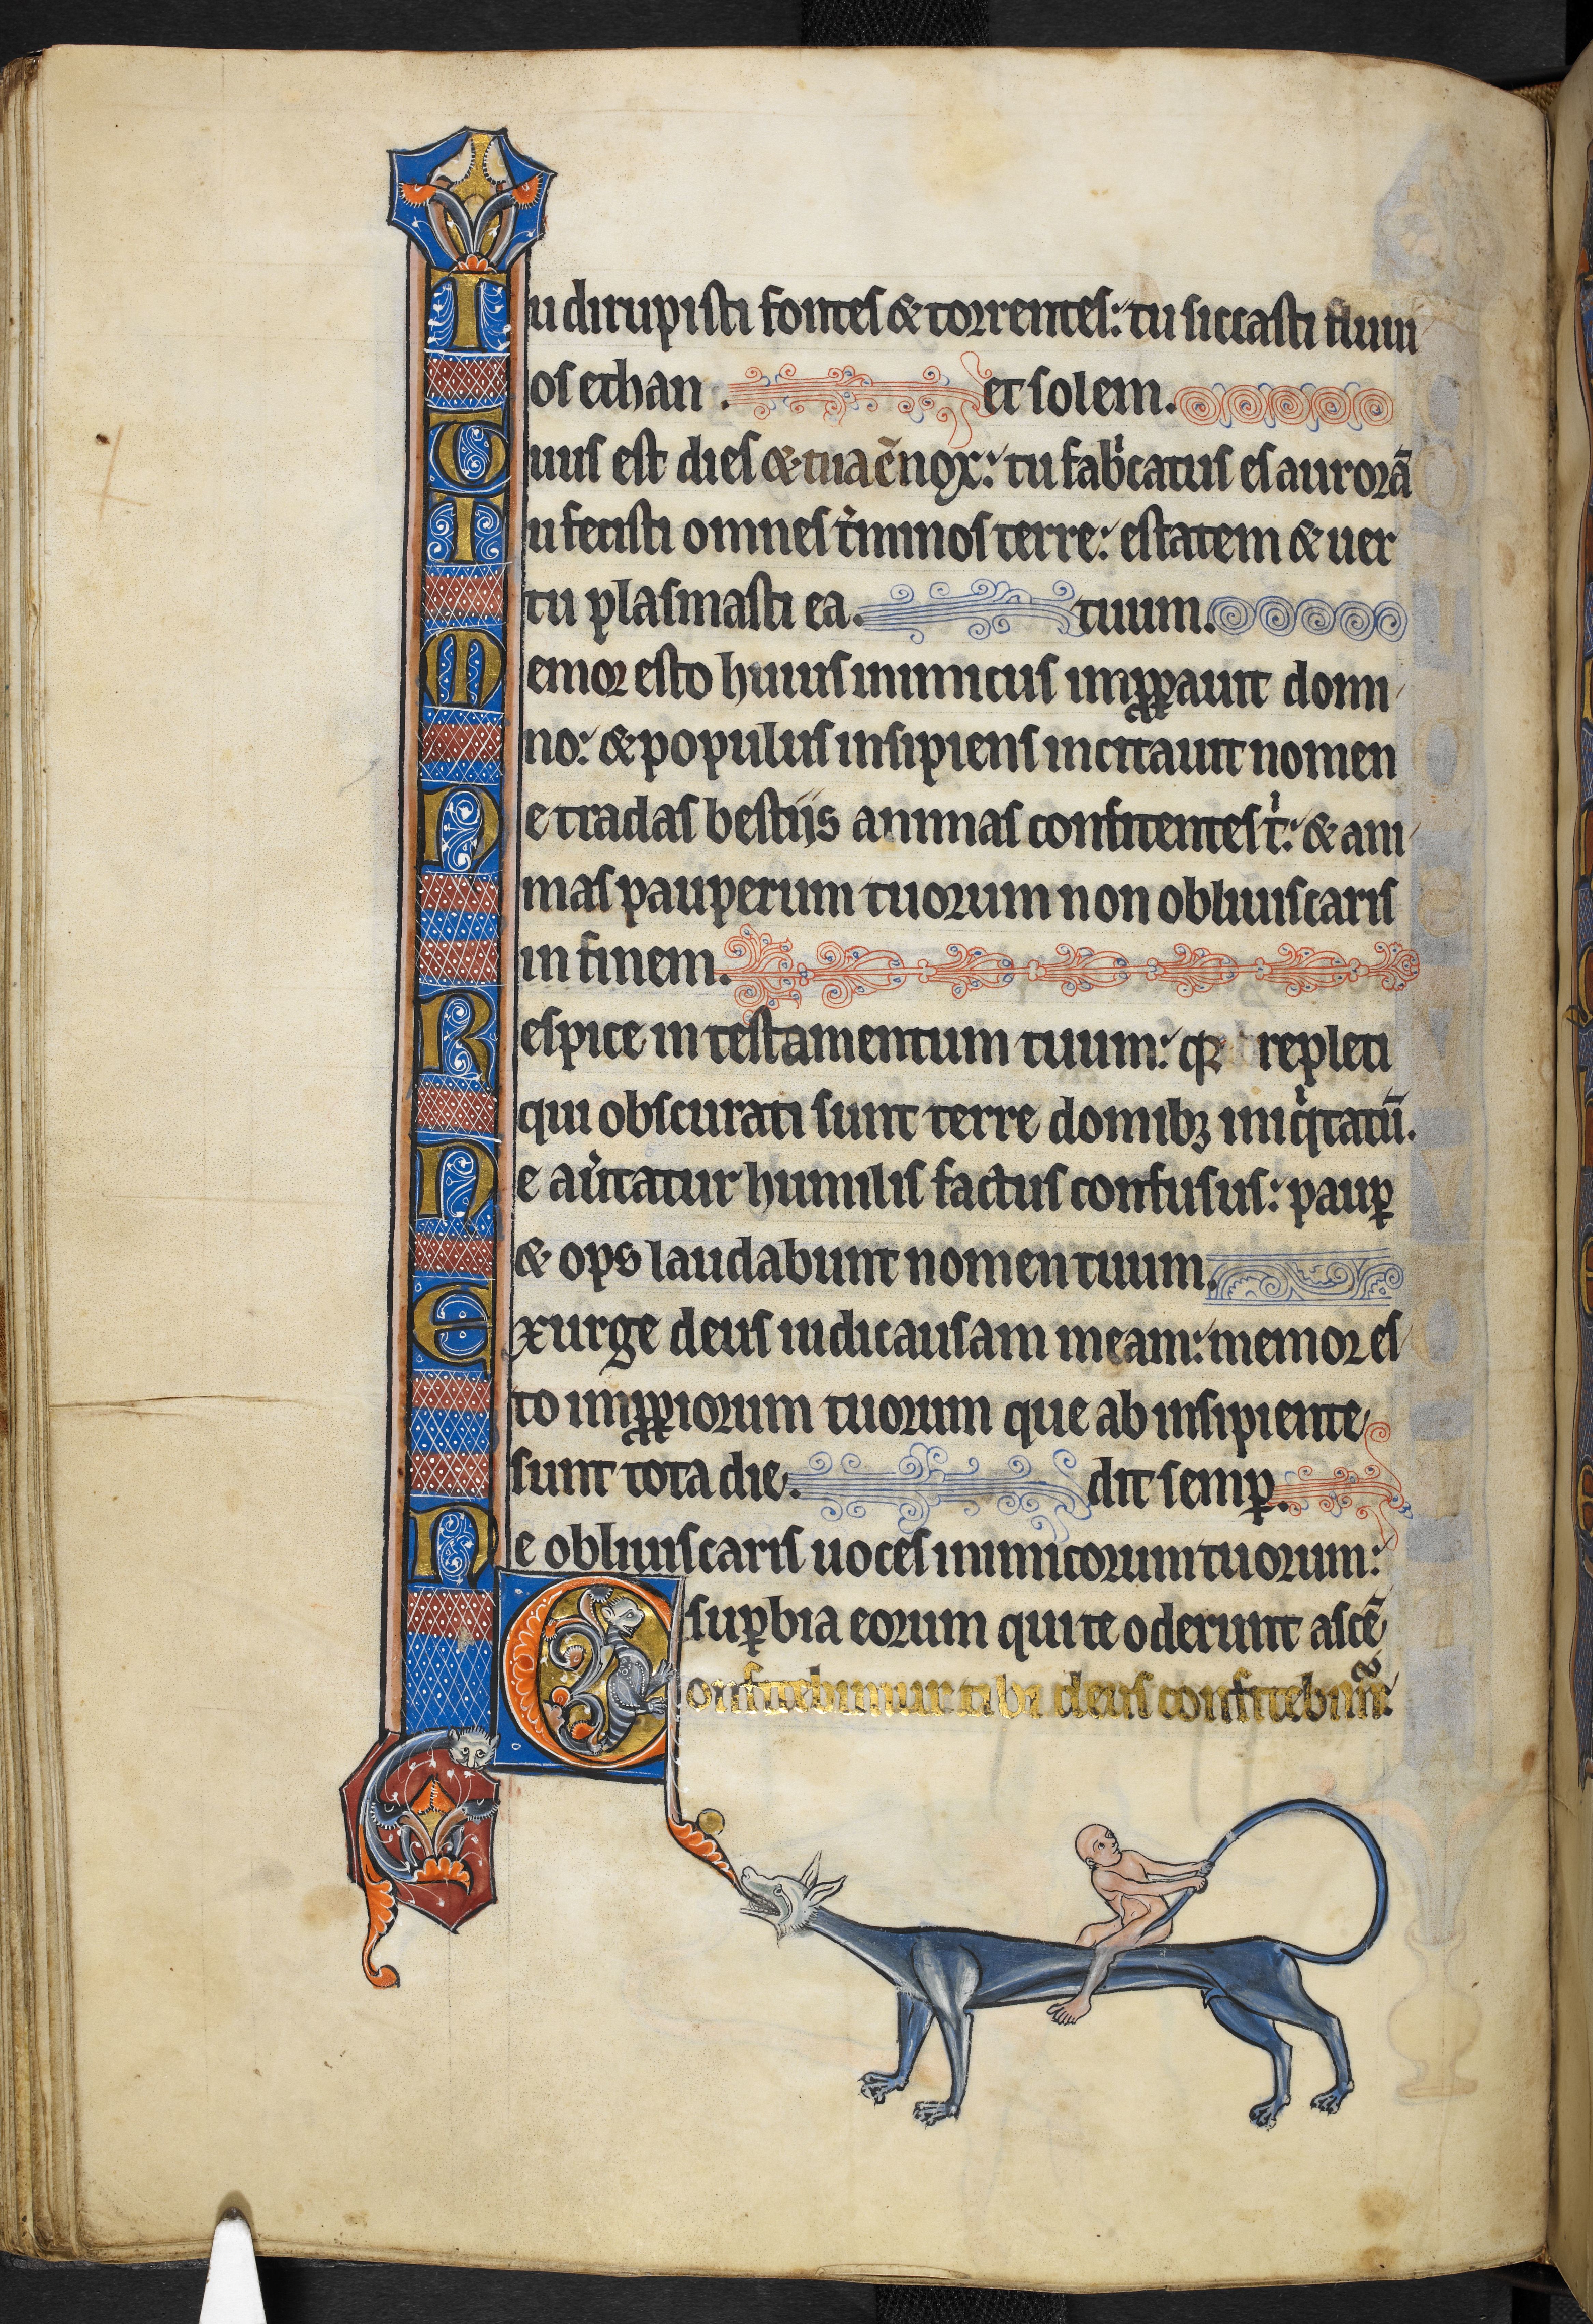 Tu dirupisti fontes & torrentes: tu siccasti fluui
os ethan. et solem.
Tuus est dies & tua ē nox: tu fabⁱcatus es aurorā
Tu fecisti omnes tⁱminos terre: estatem & uer
tu plasmasti ea. tuum.
Memor esto huius inimicus imꝓꝑauit domi
no: & populus insipiens incitauit nomen
Ne tradas bestiis animas confitentes tⁱ: & ani
mas pauperum tuorum non obliuiscaris
in finem.
Respice in testamentum tuum: qꝛ repleti
qui obscurati sunt terre domibꝫ iniqⁱtatū.
Ne auⁱtatur humilis factus confusus: pauꝑ
& ops laudabunt nomen tuum.
Exurge deus iudica causam meam: memor es
to imꝓꝑiorum tuorum que ab insipiente
sunt tota die. dit semꝑ.
Ne obliuiscaris uoces inimicorum tuorum:
suꝑbia eorum qui te oderunt ascē
Confitebimur tibi deus confitebimur: